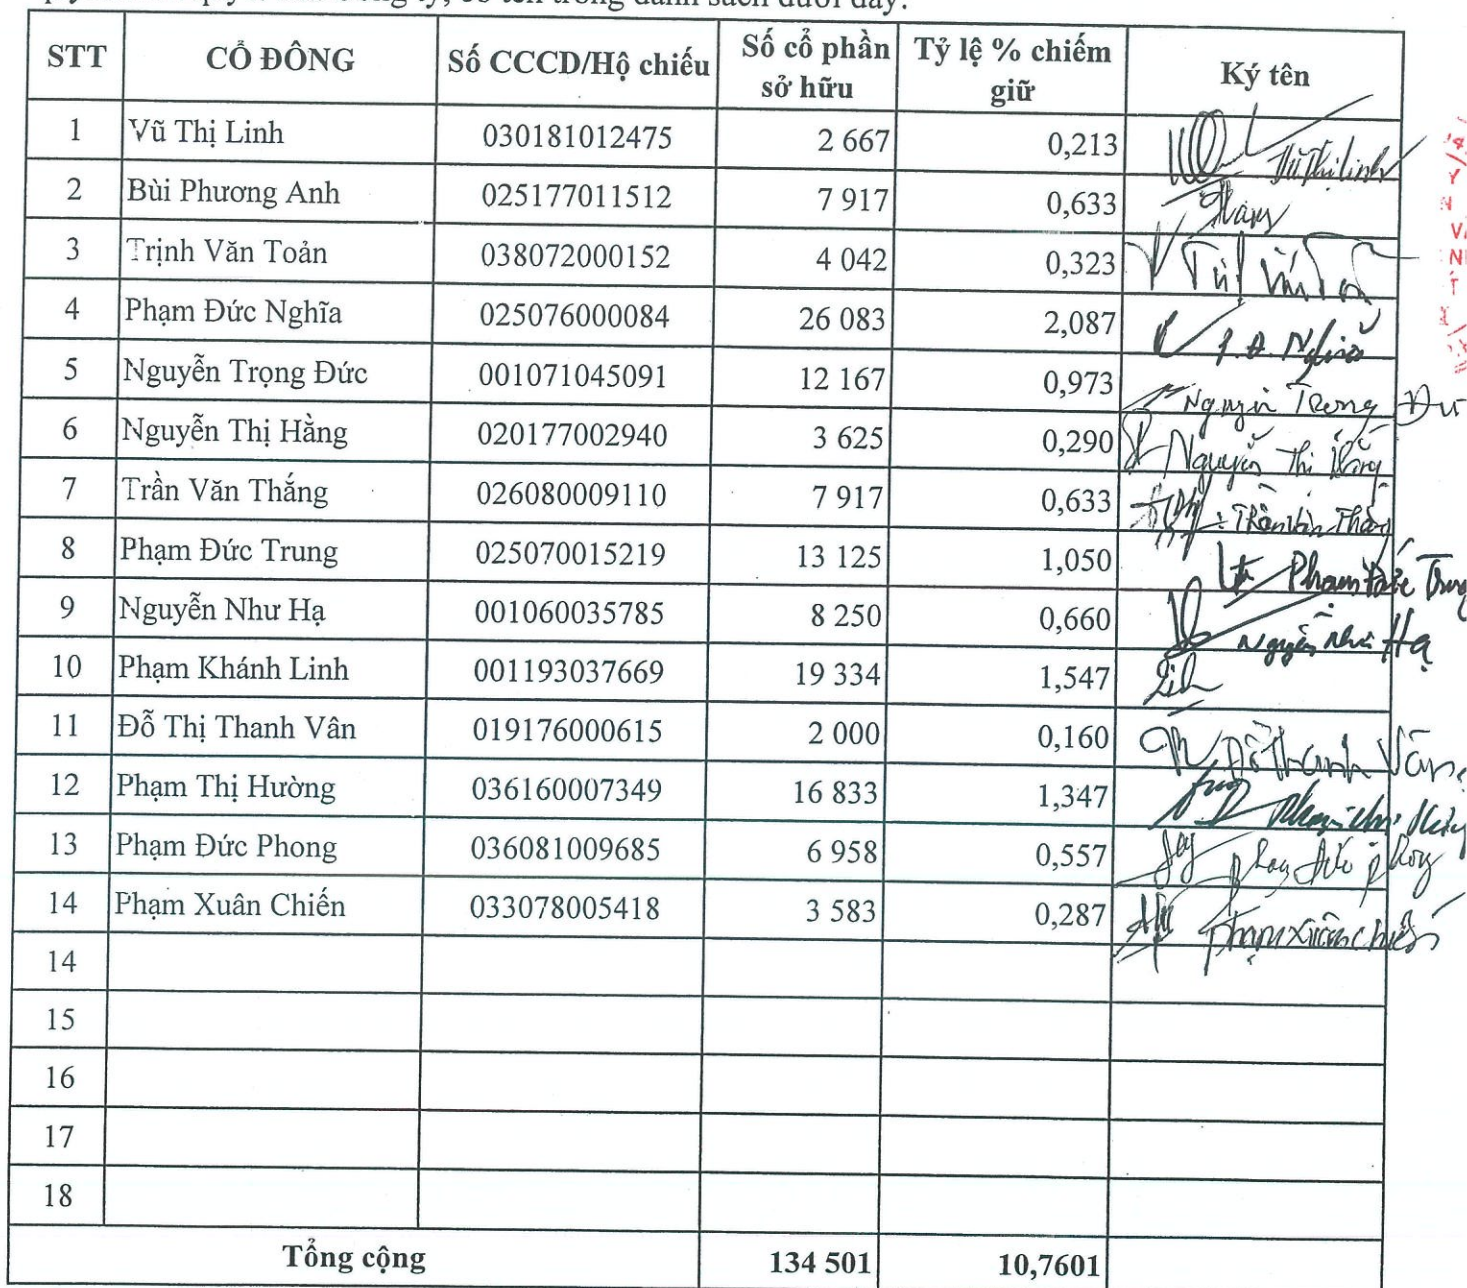 trong danh sách dưới đây:
STT CỔ ĐÔNG Số CCCD/Hộ chiếu Số cổ phần sở hữu Tỷ lệ % chiếm giữ Ký tên
1 Vũ Thị Linh 030181012475 2 667 0,213 Vũ Thị Linh
2 Bùi Phương Anh 025177011512 7 917 0,633
3 Trịnh Văn Toản 038072000152 4 042 0,323
4 Phạm Đức Nghĩa 025076000084 26 083 2,087 P.Đ. Nghĩa
5 Nguyễn Trọng Đức 001071045091 12 167 0,973 Nguyễn Trọng Đức
6 Nguyễn Thị Hằng 020177002940 3 625 0,290 Nguyễn Thị Hằng
7 Trần Văn Thắng 026080009110 7 917 0,633 Trần Văn Thắng
8 Phạm Đức Trung 025070015219 13 125 1,050 Phạm Đức Trung
9 Nguyễn Như Hạ 001060035785 8 250 0,660 Nguyễn Như Hạ
10 Phạm Khánh Linh 001193037669 19 334 1,547
11 Đỗ Thị Thanh Vân 019176000615 2 000 0,160 Đỗ Thanh Vân
12 Phạm Thị Hường 036160007349 16 833 1,347
13 Phạm Đức Phong 036081009685 6 958 0,557 Phạm Đức Phong
14 Phạm Xuân Chiến 033078005418 3 583 0,287 Phạm Xuân Chiến
14
15
16
17
18
Tổng cộng 134 501 10,7601